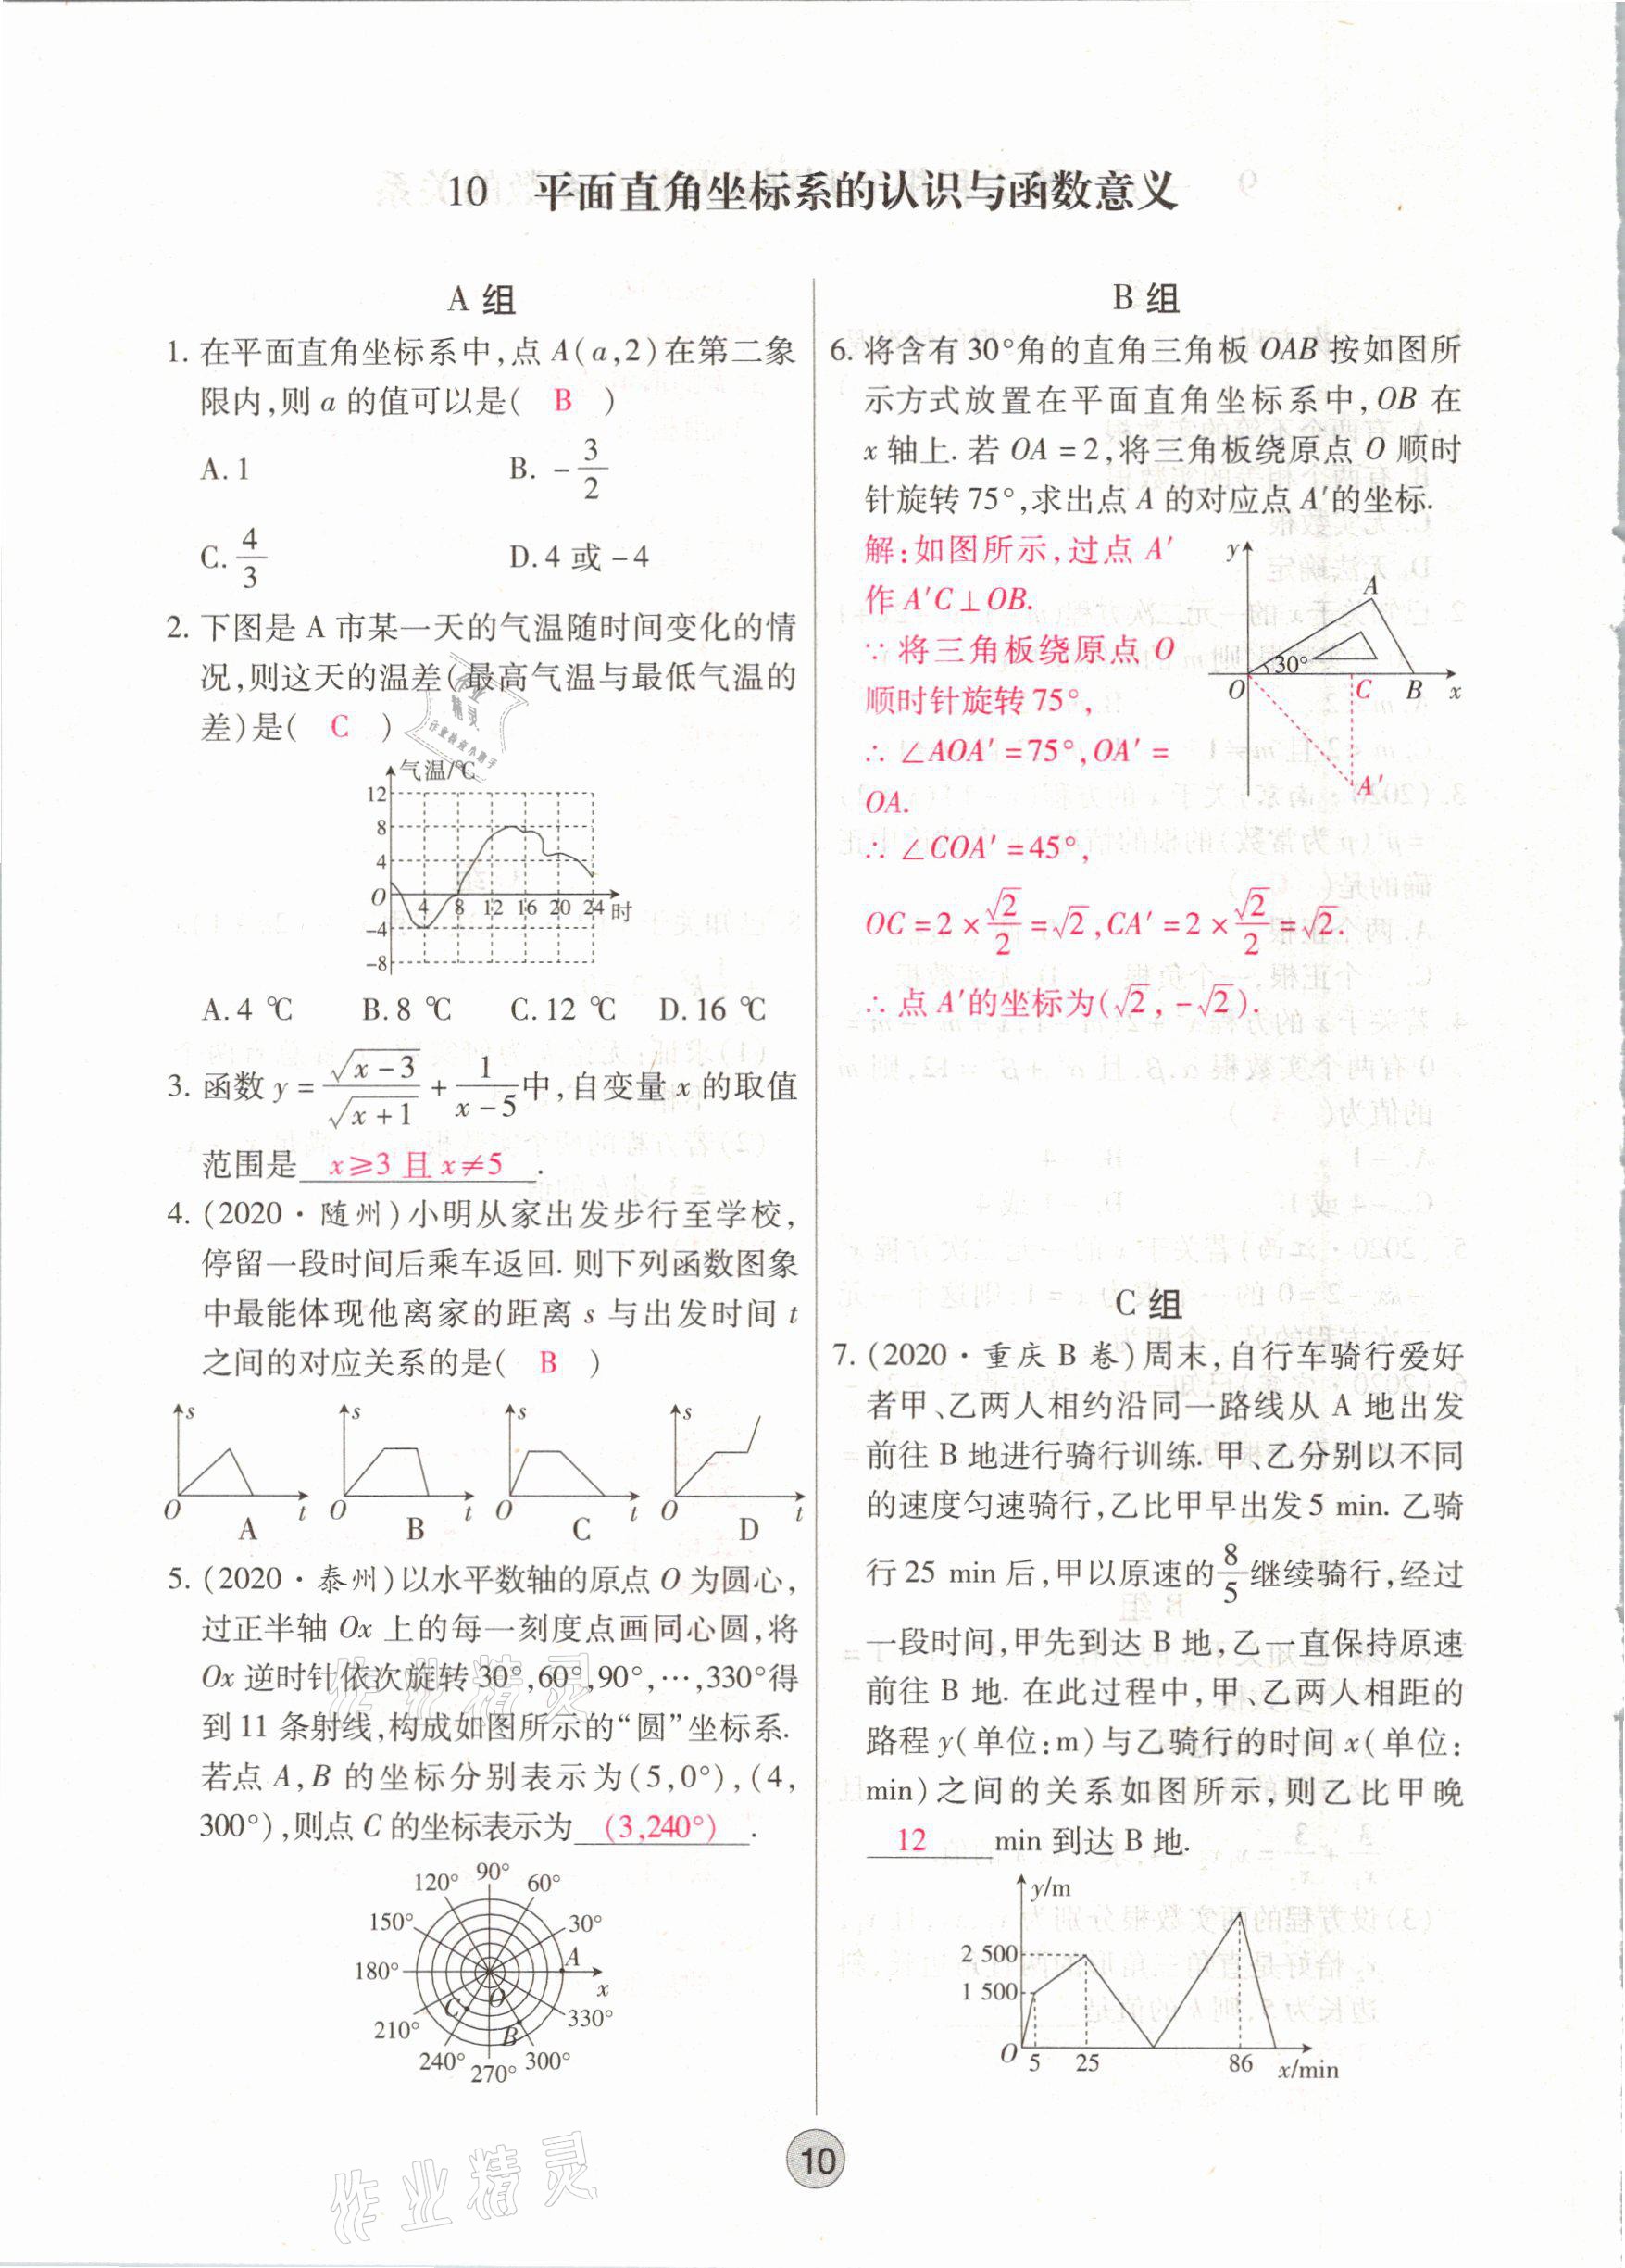 10 平面直角坐标系的认识与函数意义
A 组
1. 在平面直角坐标系中,点 A(a,2)在第二象
限内,则 a 的值可以是( B )
A. 1 B. -3/2
C. 4/3 D. 4 或 -4
2. 下图是 A 市某一天的气温随时间变化的情
况,则这天的温差(最高气温与最低气温的
差)是( C )
气温/℃
12
8
4
O 4 8 12 16 20 24 时
-4
-8
A. 4 ℃ B. 8 ℃ C. 12 ℃ D. 16 ℃
3. 函数 y = √(x-3)/√(x+1) + 1/(x-5) 中,自变量 x 的取值
范围是 x≥3 且 x≠5 .
4. (2020·随州)小明从家出发步行至学校,
停留一段时间后乘车返回. 则下列函数图象
中最能体现他离家的距离 s 与出发时间 t
之间的对应关系的是( B )
s s s s
O t O t O t O t
A B C D
5. (2020·泰州)以水平数轴的原点 O 为圆心,
过正半轴 Ox 上的每一刻度点画同心圆,将
Ox 逆时针依次旋转 30°,60°,90°,…,330°得
到 11 条射线,构成如图所示的“圆”坐标系.
若点 A,B 的坐标分别表示为(5,0°),(4,
300°),则点 C 的坐标表示为 (3,240°) .
120° 90° 60°
150° 30°
180° A
O x
C B
210° 330°
240° 270° 300°
B 组
6. 将含有 30°角的直角三角板 OAB 按如图所
示方式放置在平面直角坐标系中,OB 在
x 轴上. 若 OA = 2,将三角板绕原点 O 顺时
针旋转 75°,求出点 A 的对应点 A′的坐标.
解:如图所示,过点 A′
作 A′C⊥OB.
∵ 将三角板绕原点 O
顺时针旋转 75°,
∴ ∠AOA′ = 75°,OA′ =
OA.
∴ ∠COA′ = 45°,
OC = 2 × √2/2 = √2 ,CA′ = 2 × √2/2 = √2.
∴ 点 A′的坐标为(√2 , -√2).
y
A
30°
O C B x
A′
C 组
7. (2020·重庆 B 卷)周末,自行车骑行爱好
者甲、乙两人相约沿同一路线从 A 地出发
前往 B 地进行骑行训练. 甲、乙分别以不同
的速度匀速骑行,乙比甲早出发 5 min. 乙骑
行 25 min 后,甲以原速的 8/5 继续骑行,经过
一段时间,甲先到达 B 地,乙一直保持原速
前往 B 地. 在此过程中,甲、乙两人相距的
路程 y(单位:m)与乙骑行的时间 x(单位:
min)之间的关系如图所示,则乙比甲晚
12 min 到达 B 地.
y/m
2 500
1 500
O 5 25 86 x/min
10
作业精灵
作业精灵
作业精灵
作业检查小助手